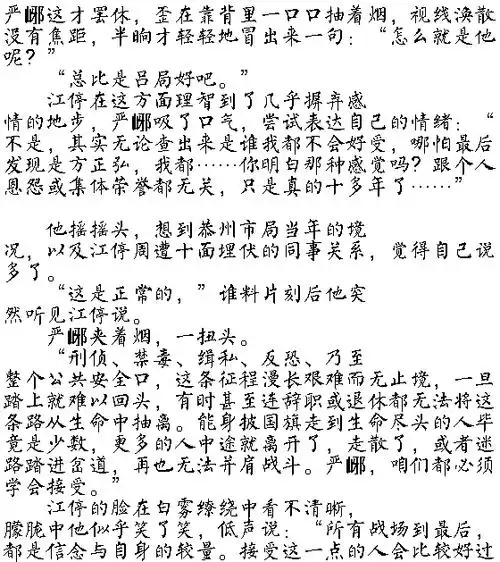 严峫这才罢休，歪在靠背里一口口抽着烟，视线涣散
没有焦距，半晌才轻轻地冒出来一句：“怎么就是他
呢？”
“总比是吕局好吧。”
江停在这方面理智到了几乎摒弃感
情的地步，严峫吸了口气，尝试表达自己的情绪：“
不是，其实无论查出来是谁我都不会好受，哪怕最后
发现是方正弘，我都……你明白那种感觉吗？跟个人
恩怨或集体荣誉都无关，只是真的十多年了……”
他摇摇头，想到恭州市局当年的境
况，以及江停周遭十面埋伏的同事关系，觉得自己说
多了。
“这是正常的，”谁料片刻后他突
然听见江停说。
严峫夹着烟，一扭头。
“刑侦、禁毒、缉私、反恐、乃至
整个公共安全口，这条征程漫长艰难而无止境，一旦
踏上就难以回头，有时甚至连辞职或退休都无法将这
条路从生命中抽离。能身披国旗走到生命尽头的人毕
竟是少数，更多的人中途就离开了，走散了，或者迷
路踏进岔道，再也无法并肩战斗。严峫，咱们都必须
学会接受。”
江停的脸在白雾缭绕中看不清晰，
朦胧中他似乎笑了笑，低声说：“所有战场到最后，
都是信念与自身的较量。接受这一点的人会比较好过